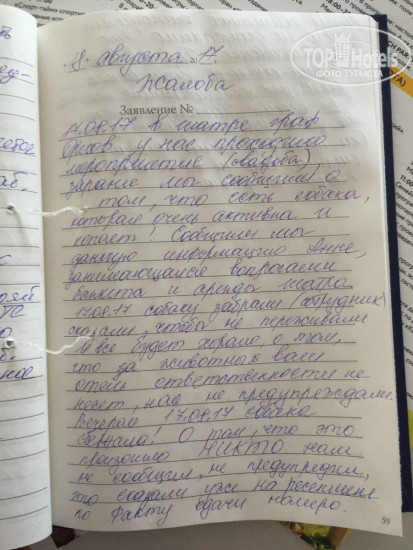 18 августа 2017.
Жалоба
Заявление №
17.08.17 в шатре Граф
Орлов у нас проходило
мероприятие (свадьба),
заранее мы сообщили о
том, что есть собака,
которая очень активна и
копает! Сообщили мы
данную информацию Анне,
занимающаяся вопросами
банкета и аренды шатра.
17.08.17 собаку забрали (сотрудник)
сказали, чтобы не переживали
и все будет хорошо, о том,
что за животных ваш
отель ответственности не
несет, нас не предупреждали.
Вечером 17.08.17 собака
сбежала! О том, что это
произошло НИКТО нам
не сообщил, не предупредил,
это сказали уже на ресепшене
по факту сдачи номера.
59
TOP Hotels
ФОТО ТУРИСТА